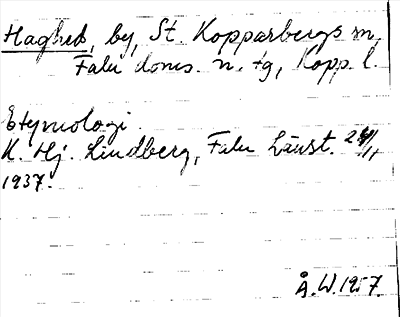 Haghed, by, St. Kopparbergs sn,
Falu doms. n. tg, Kopp. l.
Etymologi.
K. Hj. Lindberg, Falu Länst. 24/11
1937.
Å. W. 1957.